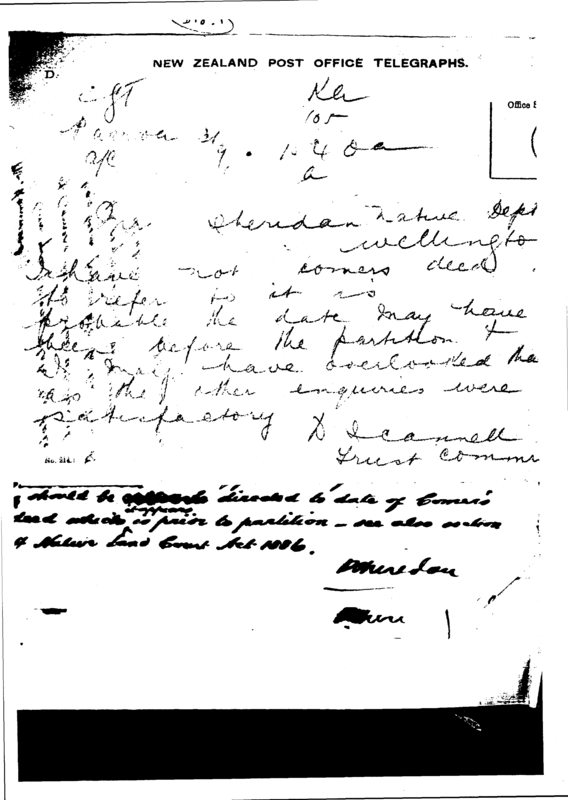 D.
NEW ZEALAND POST OFFICE TELEGRAPHS.
Office
105
a
Sheridan Native Dept
Wellingto
I have not comers deed
to refer to it is
probable the date may have
been before the partition &
I may have overlooked tha
as the other enquiries were
satisfactory
Trust Comm
should be directed to date of Comer's
deed which it appears is prior to partition – see also section
of Native Land Court Act 1886.